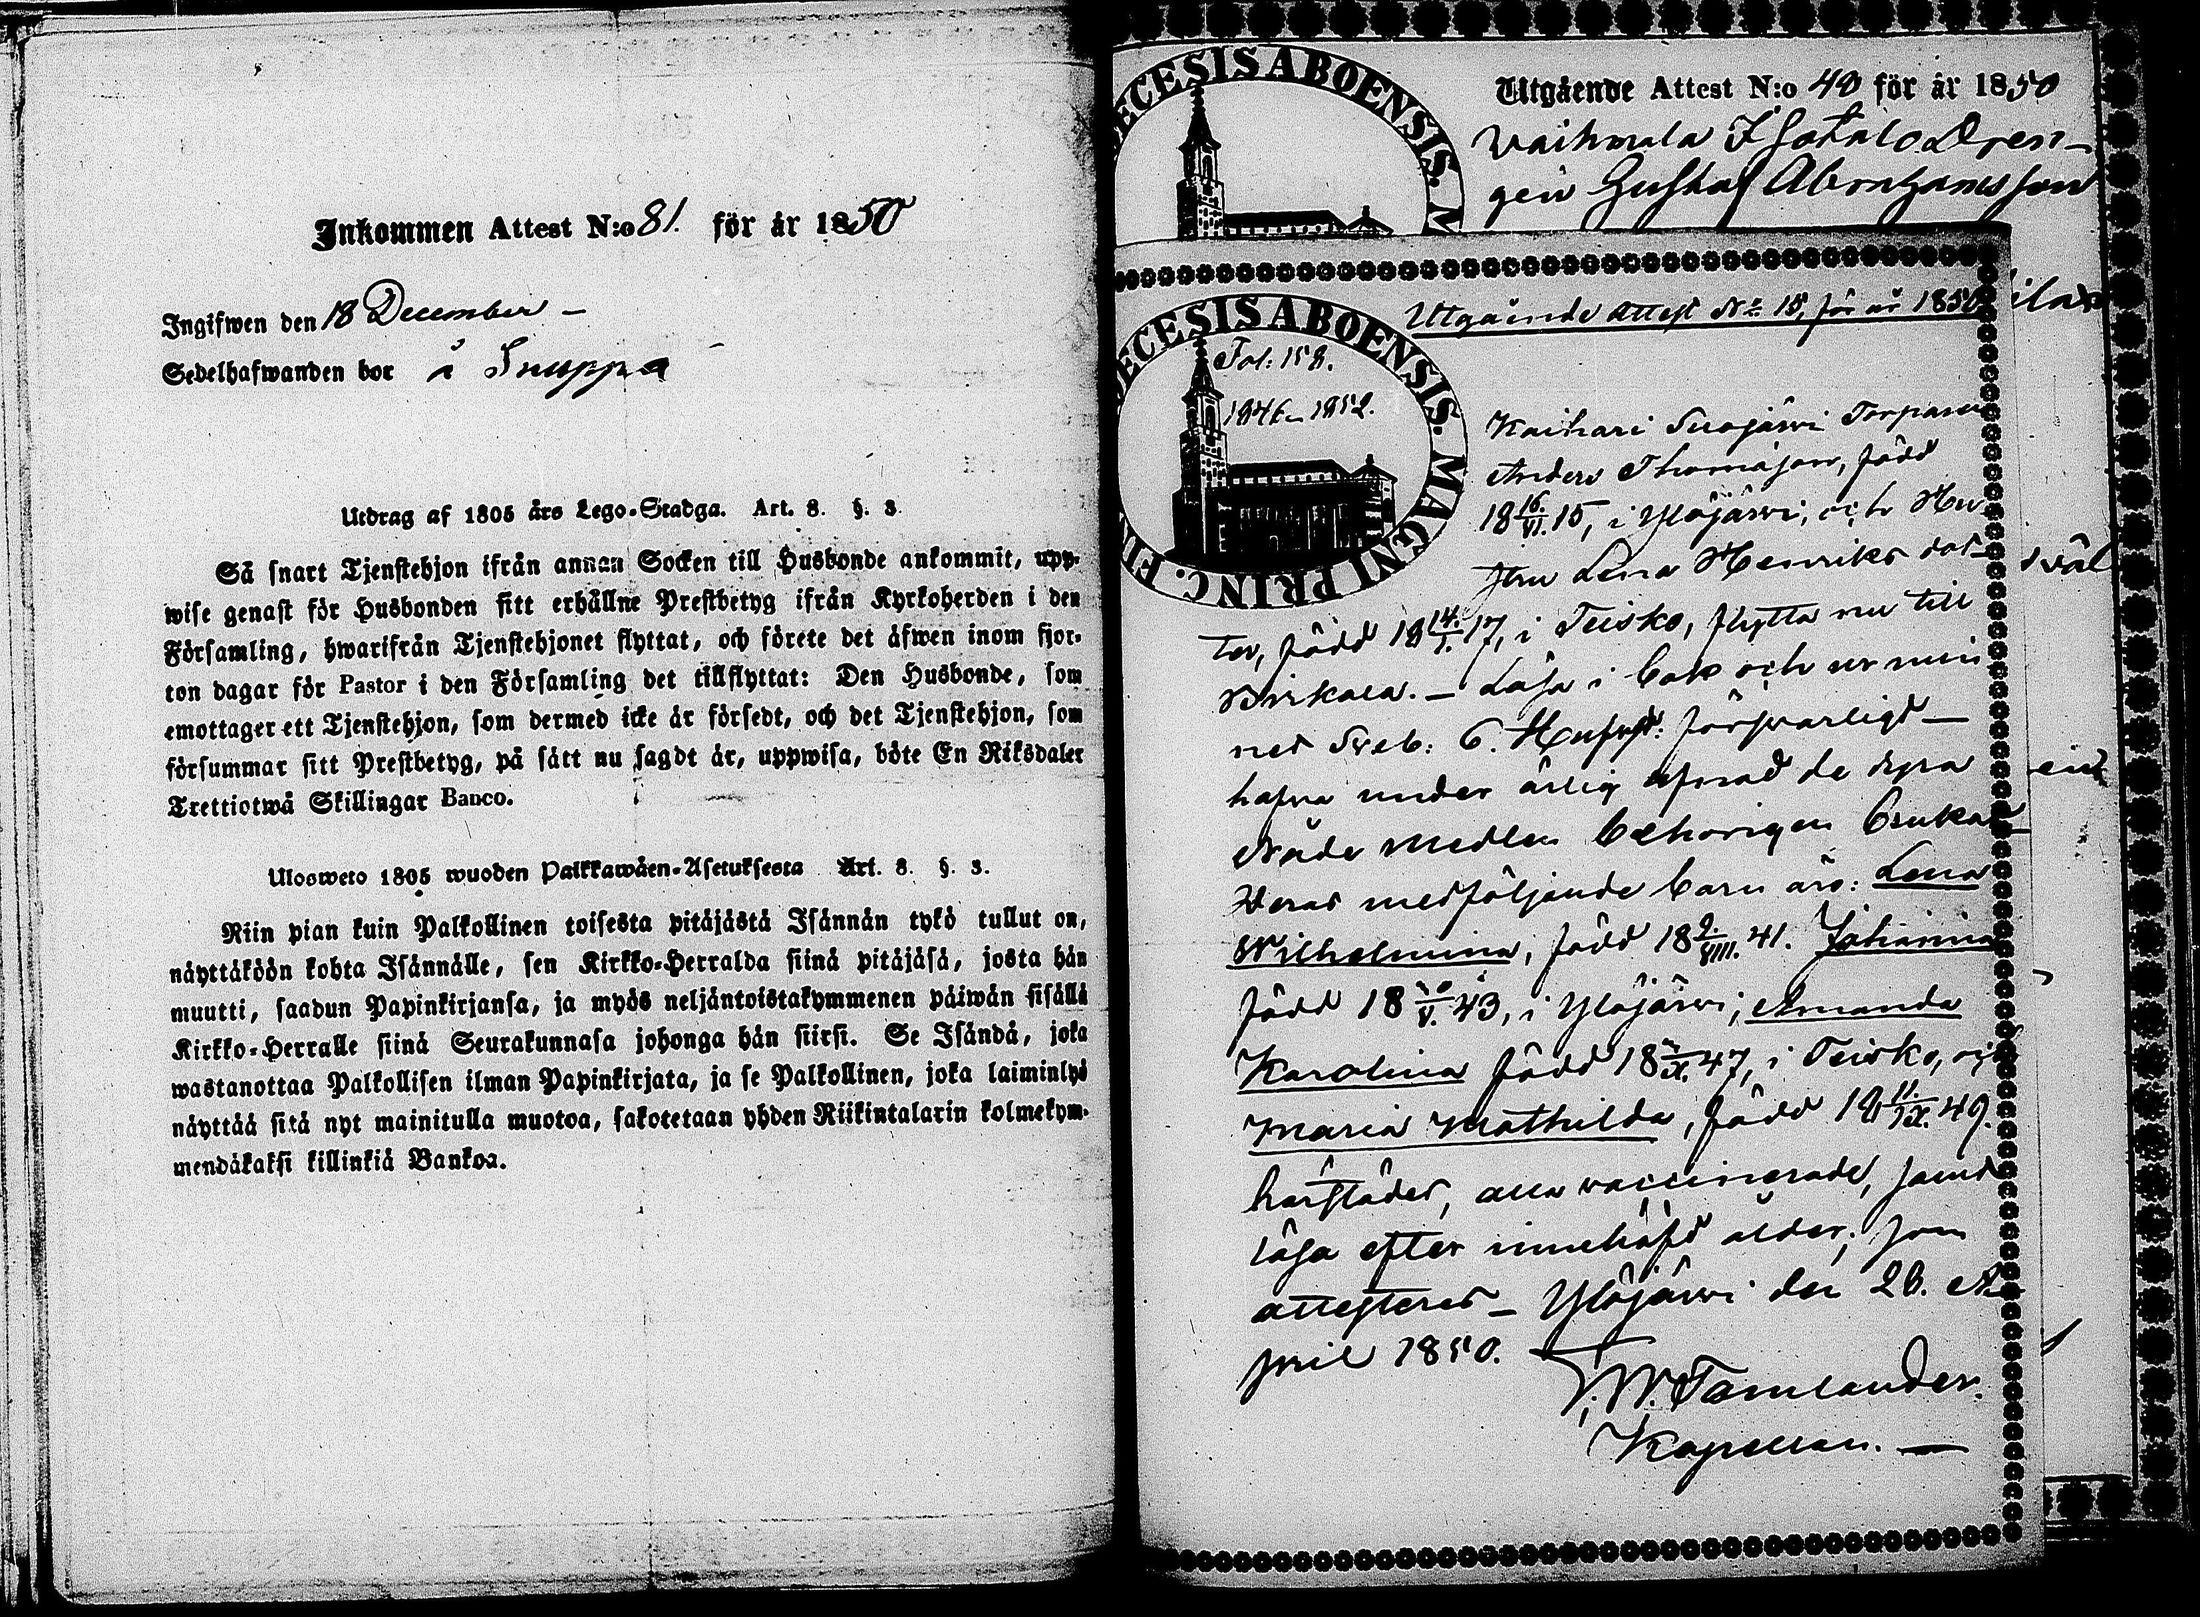 Inkommen Attest N:o 81. för år 1850
Ingifwen den 18 December –
Sedelhafwanden bor å Snuppa
Utdrag af 1805 års Lego-Stadga. Art. 8. §. 3.
Så snart Tjenstehjon ifrån annan Socken till Husbonde ankommit, upp-
wise genast för Husbonden sitt erhållne Prestbetyg ifrån Kyrkoherden i den
Församling, hwarifrån Tjenstehjonet flyttat, och förete det äfwen inom fjor-
ton dagar för Pastor i den Församling det tillflyttat: Den Husbonde, som
emottager ett Tjenstehjon, som dermed icke är försedt, och det Tjenstehjon, som
försummar sitt Prestbetyg, på sätt nu sagdt är, uppwisa, böte En Riksdaler
Trettiotwå Skillingar Banco.
Ulosweto 1805 wuoden Palkkawäen-Asetuksesta Art. 8. §. 3.
Niin pian kuin Palkollinen toisesta pitäjästä Isännän tykö tullut on,
näyttäköön kohta Isännälle, sen Kirkko-Herralda siinä pitäjäsä, josta hän
muutti, saadun Papinkirjansa, ja myös neljäntoistakymmenen päiwän sisällä
Kirkko-Herralle siinä Seurakunnasa johonga hän siirsi. Se Isändä, joka
wastanottaa Palkollisen ilman Papinkirjata, ja se Palkollinen, joka laiminlyö
näyttää sitä nyt mainitulla muotoa, sakotetaan yhden Riikintalarin kolmekym-
mendäkaksi killinkiä Bankoa.
Utgående Attest N:o 40 för år 1850
Vaihmala Isotalo Dren-
gen Gustaf Abrahamsson
ECESIS ABOENSIS. M
Utgående Attest No 15, för år 1850
ECESIS ABOENSIS. MAGNI PRINC. FIN
Fol: 158.
1846–1852.
Kaihari Suojärwi Torparen
Anders Thomasson, född
18 16/VI. 15, i Ylöjärwi, och Hu-
stru Lena Henriks dot-
ter, född 18 14/I. 17, i Teisko, flytta nu till
Birkala. – Läsa i bok och ur min
net Sveb: C. Husast: försvarligt –
hafva under årlig afnad de dyra
Nåde medlen behörigen brukat
Deras medföljande barn äro: Lena
Wilhelmina, född 18 2./VIII. 41. Johanna
född 18 /V. 43, i Ylöjärwi; Amanda
Karolina född 18 47, i Teisko, och
Maria Mathilda, född 18 11/IX. 49.
härstädes, alla vaccinerade, samt
läsa efter innehafd ålder; som
attesteras – Ylöjärwi den 26. A-
pril 1850.
W. Tamlander.
Kapellan. –